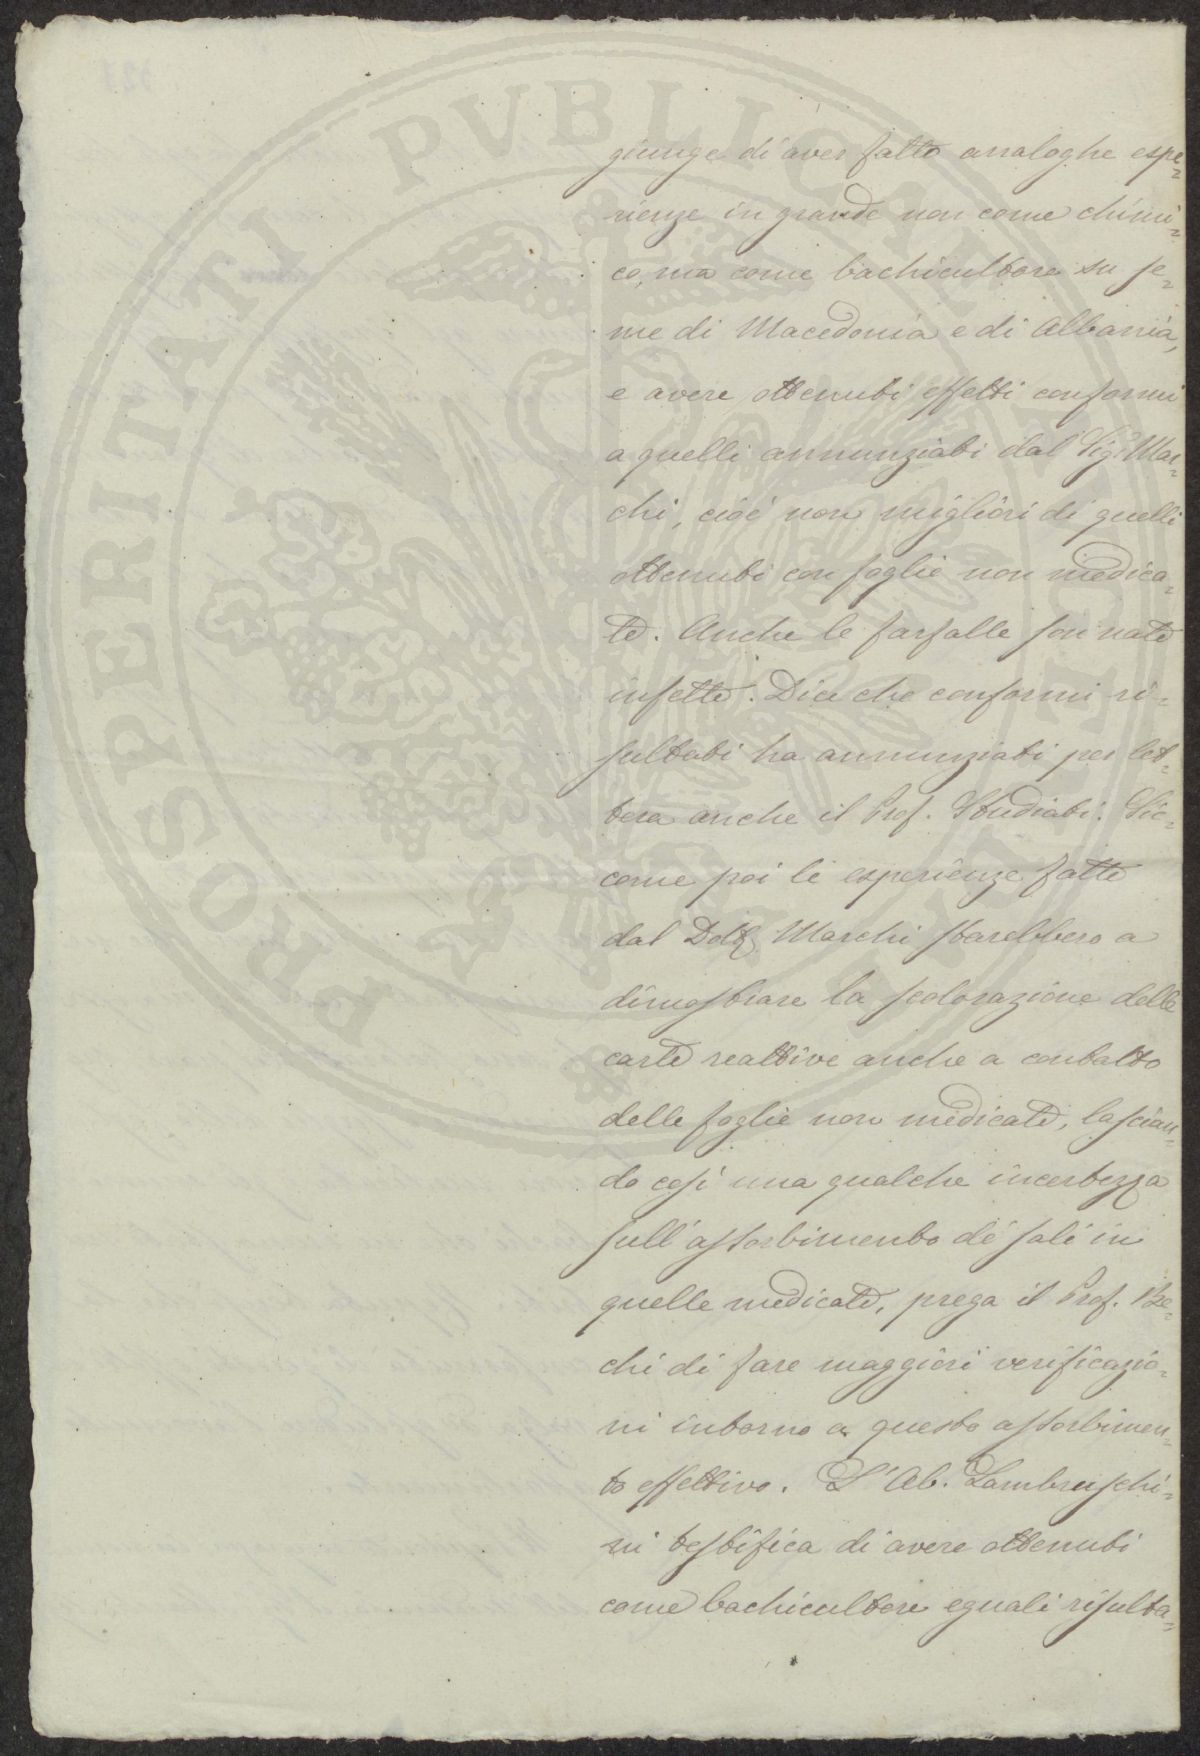 giunge di aver fatto analoghe espe=
rienze in grande non come chimi=
co, ma come bachicultore su se=
me di Macedonia e di Albania,
e avere ottenuti effetti conformi
a quelli annunziati dal Sig. Mar=
chi, cioè non migliori di quelli
ottenuti con foglie non medica=
te. Anche le farfalle son nate
infette. Dice che conformi ri=
sultati ha annunziati per let=
tera anche il Prof. Studiati. Sic=
come poi le esperienze fatte
dal Dott. Marchi starebbero a
dimostrare la scolorazione delle
carte reattive anche a contatto
delle foglie non medicate, lascian=
do così una qualche incertezza
sull'assorbimento de' sali in
quelle medicate, prega il Prof. Be=
chi di fare maggiori verificazio=
ni intorno a questo assorbimen=
to effettivo. L'Ab. Lambruschi=
ni testifica di avere ottenuti
come bachicultore eguali risulta=
PROSPERITATI PVBLICAE